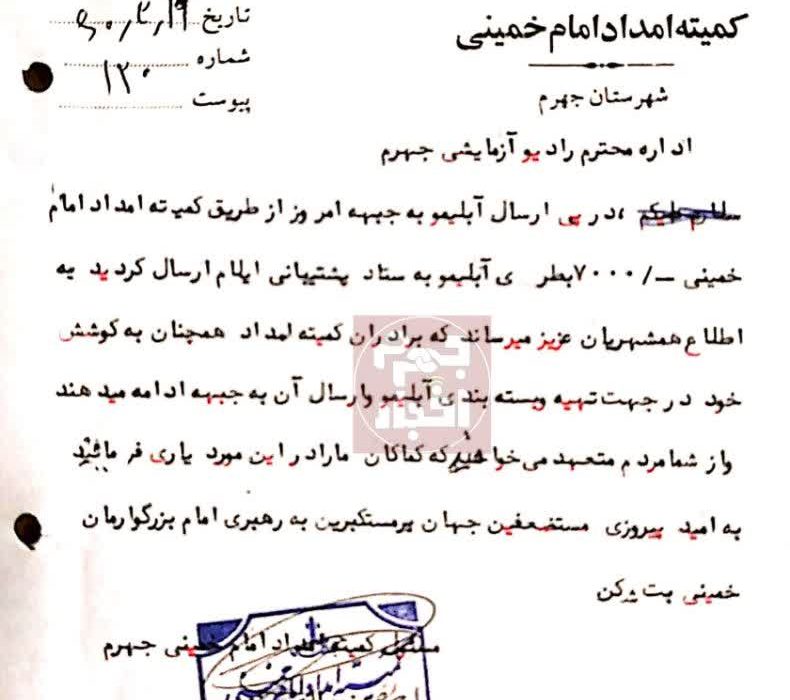 کمیته امداد امام خمینی
شهرستان جهرم
تاریخ ۶۰٫۲٫۱۹
شماره ۱۲۰
پیوست
اداره محترم رادیو آزمایشی جهرم
، در پی ارسال آبلیمو به جبهه امروز از طریق کمیته امداد امام
خمینی ــ/۷۰۰۰ بطری آبلیمو به ستاد پشتیبانی ایلام ارسال گردید به
اطلاع همشهریان عزیز میرساند که برادران کمیته امداد همچنان به کوشش
خود در جهت تهیه وبسته بندی آبلیمو وارسال آن به جبهه ادامه میدهند
واز شما مردم متعهد می‌خواهند که کماکان مارا در این مورد یاری فرمائید
به امید پیروزی مستضعفین جهان برمستکبرین به رهبری امام بزرگوارمان
خمینی بت شکن
مسئول کمیته امداد امام خمینی جهرم
جهرم
اخبار